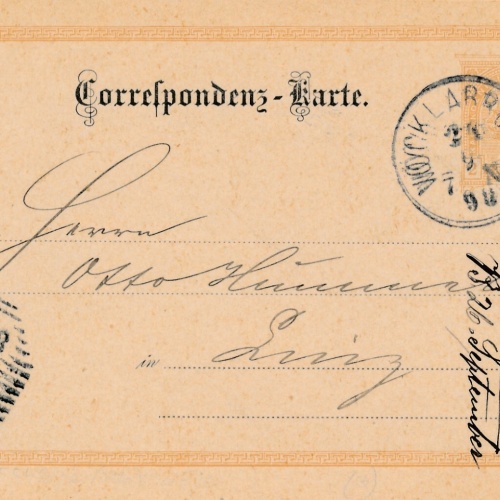 Correspondenz-Karte.
VÖCKLABRU
98
Herrn
Otto Humme
in Linz
26. September